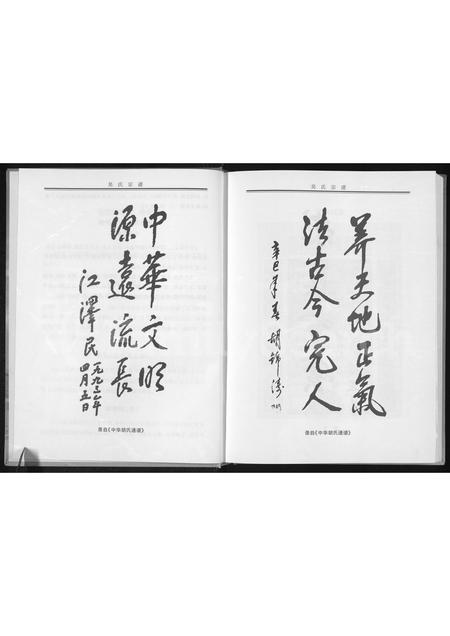 吴氏宗谱
中華文明
源遠流長
江澤民
一九九三年
四月五日
录自《中华胡氏通谱》
吴氏宗谱
养天地正氣
法古今完人
辛巳年春 胡锦涛
录自《中华胡氏通谱》